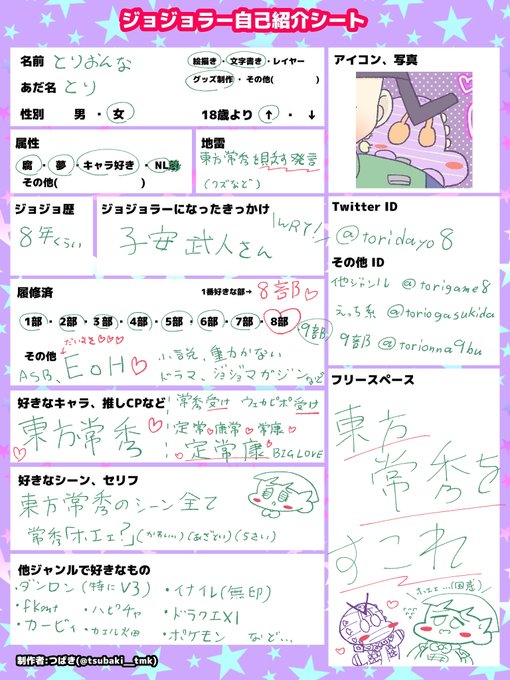 ジョジョラー自己紹介シート
名前 とりおんな
あだ名 とり
性別 男・女
絵描き・文字書き・レイヤー
グッズ制作・その他( )
18歳より ↑・↓
アイコン、写真
属性
腐・夢・キャラ好き・NL
その他( )
地雷
東方常秀を見下す発言
(クズなど)
ジョジョ歴
8年くらい
ジョジョラーになったきっかけ
子安武人さん
WRY!
Twitter ID
@toridayo8
その他 ID
他ジャンル @torigame8
えっち系 @toriogasukida
9部 @torionna9bu
履修済
1番好きな部→ 8部♡
1部・2部・3部・4部・5部・6部・7部・8部
9部
その他
だいすき♡♡♡
ASB、EoH♡
小説、動かない
ドラマ、ジョジョマガジンなど
好きなキャラ、推しCPなど
東方常秀
常秀受け ウェカピポ受け
定常♡康常♡常康♡
定常康♡ BIG LOVE
好きなシーン、セリフ
東方常秀のシーン全て
常秀「ホエェ?」(かわいい)(あざとい)(うさい)
他ジャンルで好きなもの
・ダンロン(特にV3)
・イナイレ(無印)
・fkmt
・ハピチャ
・ドラクエXI
・カービィ
・ポケモン など…
フリースペース
東方
常秀を
すこれ
ホエェ…(困惑)
制作者:つばき(@tsubaki__tmk)